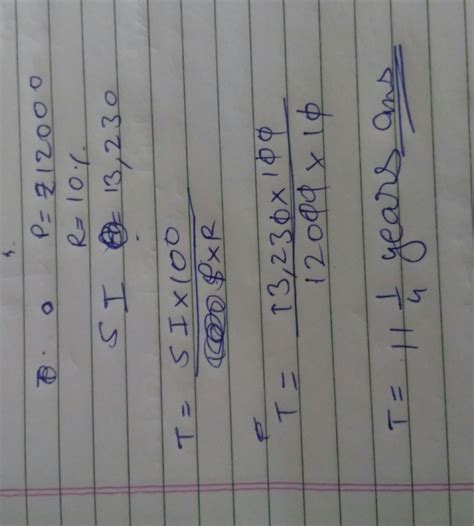 P = ₹12000
R = 10%
SI = 13,230
T = SI×100
P×R
T = 13,230×100
12000 × 10
T = 11 1/4 years ans